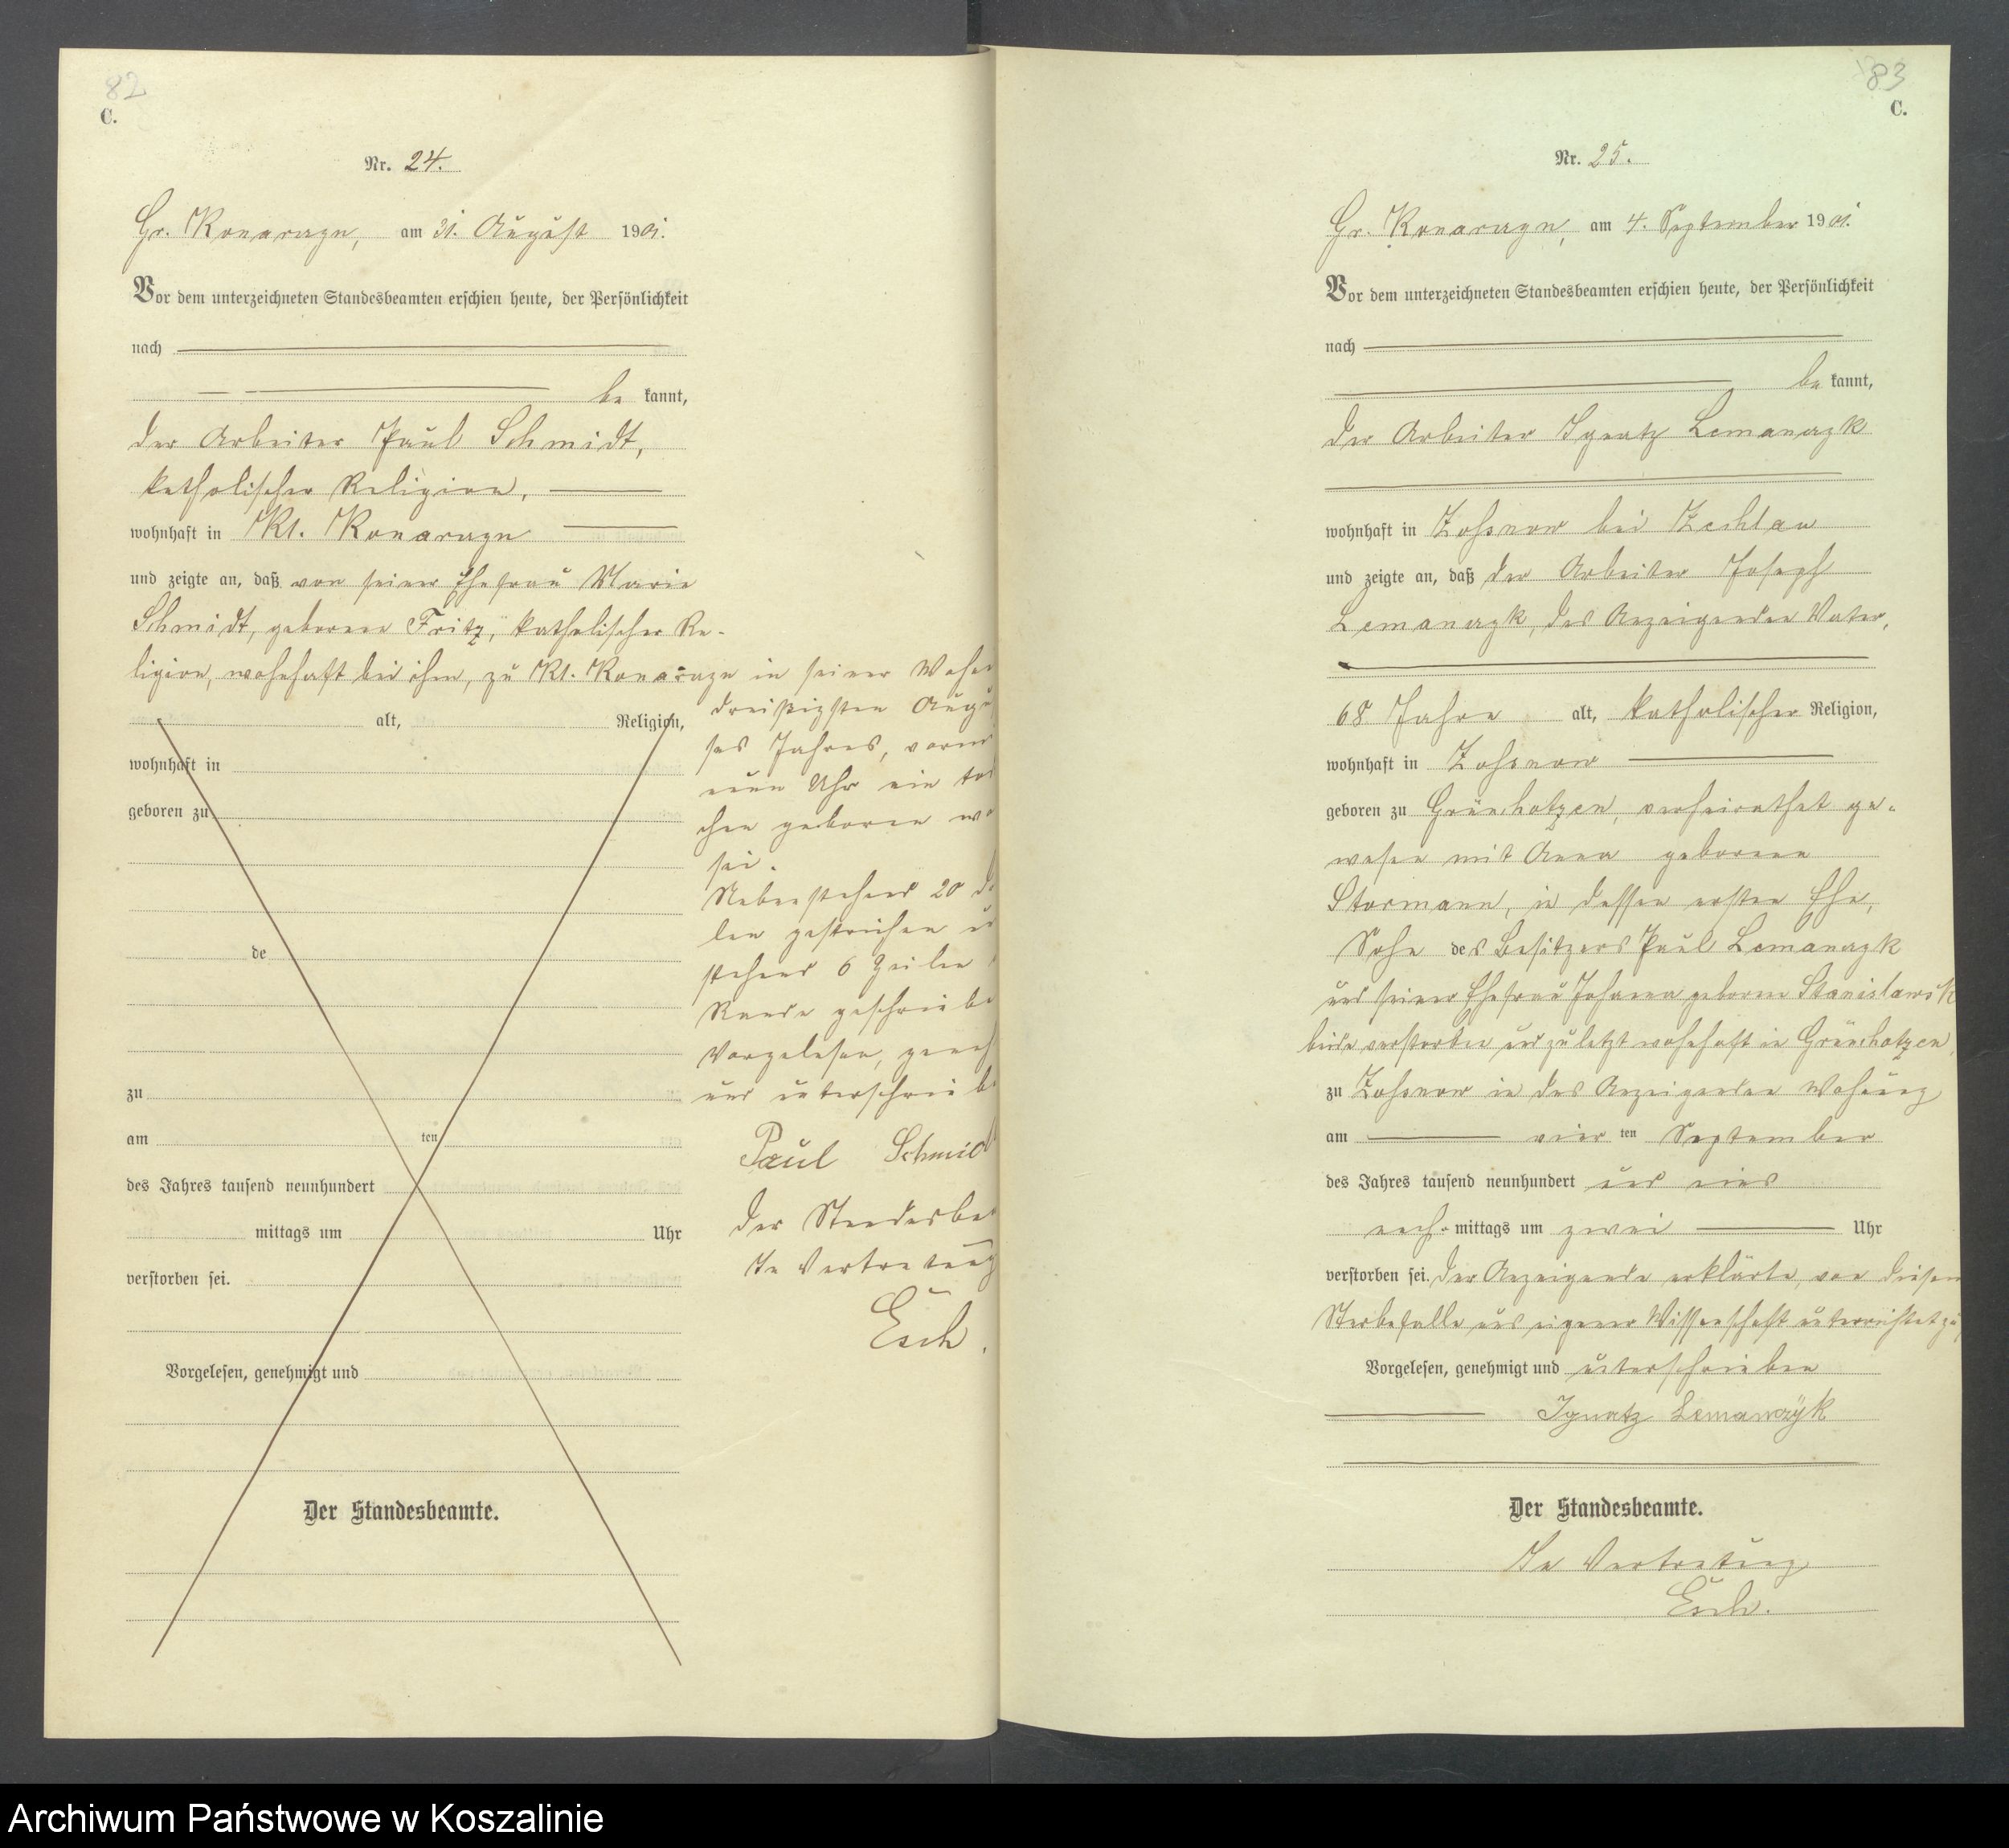 82
C.
Nr. 24.
Gr. Konarczyn, am 31. August 1901.
Vor dem unterzeichneten Standesbeamten erschien heute, der Persönlichkeit
nach
be kannt,
der Arbeiter Paul Schmidt,
katholischer Religion,
wohnhaft in Kl. Konarczyn
und zeigte an, daß von seiner Ehefrau Marie
Schmidt, geborene Fritz, katholischer Re-
ligion, wohnhaft bei ihm, zu Kl. Konarczyn in seiner Wohn
dreißigsten Augu
alt, Religion,
ses Jahres, vorm
wohnhaft in
neun Uhr ein tod
geboren zu
chen geboren wo
sei.
Nebenstehend 20 d
len gestrichen u
de
stehend 6 Zeilen
Rande geschriebe
Vorgelesen, geneh
zu
und unterschriebe
am ten
Paul Schmidt
des Jahres tausend neunhundert
Der Standesbea
mittags um Uhr
In Vertretung
verstorben sei.
Esch.
Vorgelesen, genehmigt und
Der Standesbeamte.
83
C.
Nr. 25.
Gr. Konarczyn, am 4. September 1901.
Vor dem unterzeichneten Standesbeamten erschien heute, der Persönlichkeit
nach
be kannt,
der Arbeiter Ignatz Lemanczyk
wohnhaft in Zossnow bei Zechlau
und zeigte an, daß der Arbeiter Joseph
Lemanczyk, des Anzeigenden Vater,
68 Jahre alt, katholischer Religion,
wohnhaft in Zossnow
geboren zu Grünchotzen, verheirathet ge-
wesen mit Anna geborene
Stormann, in dessen ersten Ehe,
Sohn des Besitzers Paul Lemanczyk
und seiner Ehefrau Johanna geborne Stanislawsk
beide verstorben und zuletzt wohnhaft in Grünchotzen,
zu Zossnow in des Anzeigenden Wohnung
am vier ten September
des Jahres tausend neunhundert und eins
nach- mittags um zwei Uhr
verstorben sei. Der Anzeigende erklärte, von diesem
Sterbefalle aus eigener Wissenschaft unterrichtet zu
Vorgelesen, genehmigt und unterschrieben
Ignatz Lemanczÿk
Der Standesbeamte.
In Vertretung
Esch.
Archiwum Państwowe w Koszalinie